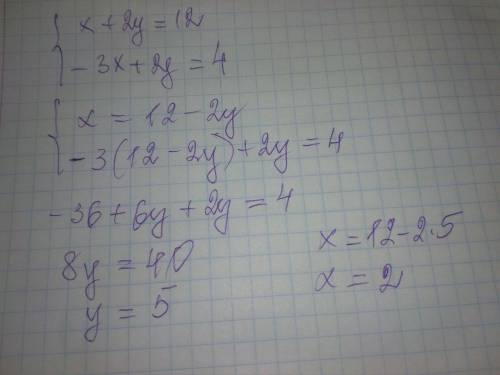 x + 2y = 12
- 3x + 2y = 4
x = 12 - 2y
-3(12 - 2y) + 2y = 4
-36 + 6y + 2y = 4
8y = 40
y = 5
x = 12 - 2·5
x = 2